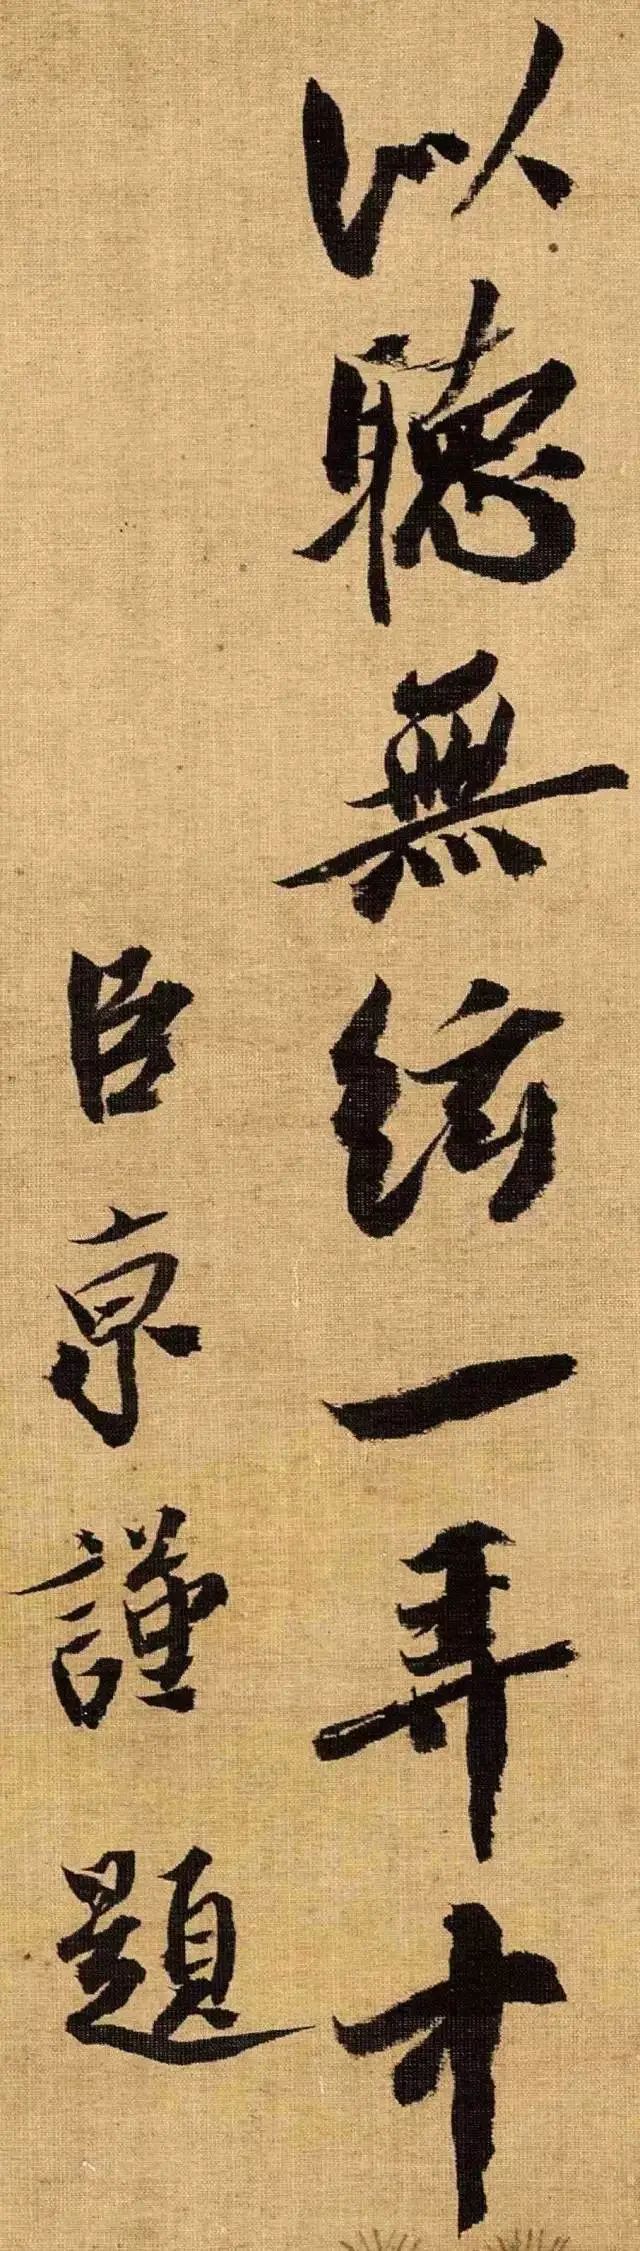 以聽無絃一弄中
臣京謹題